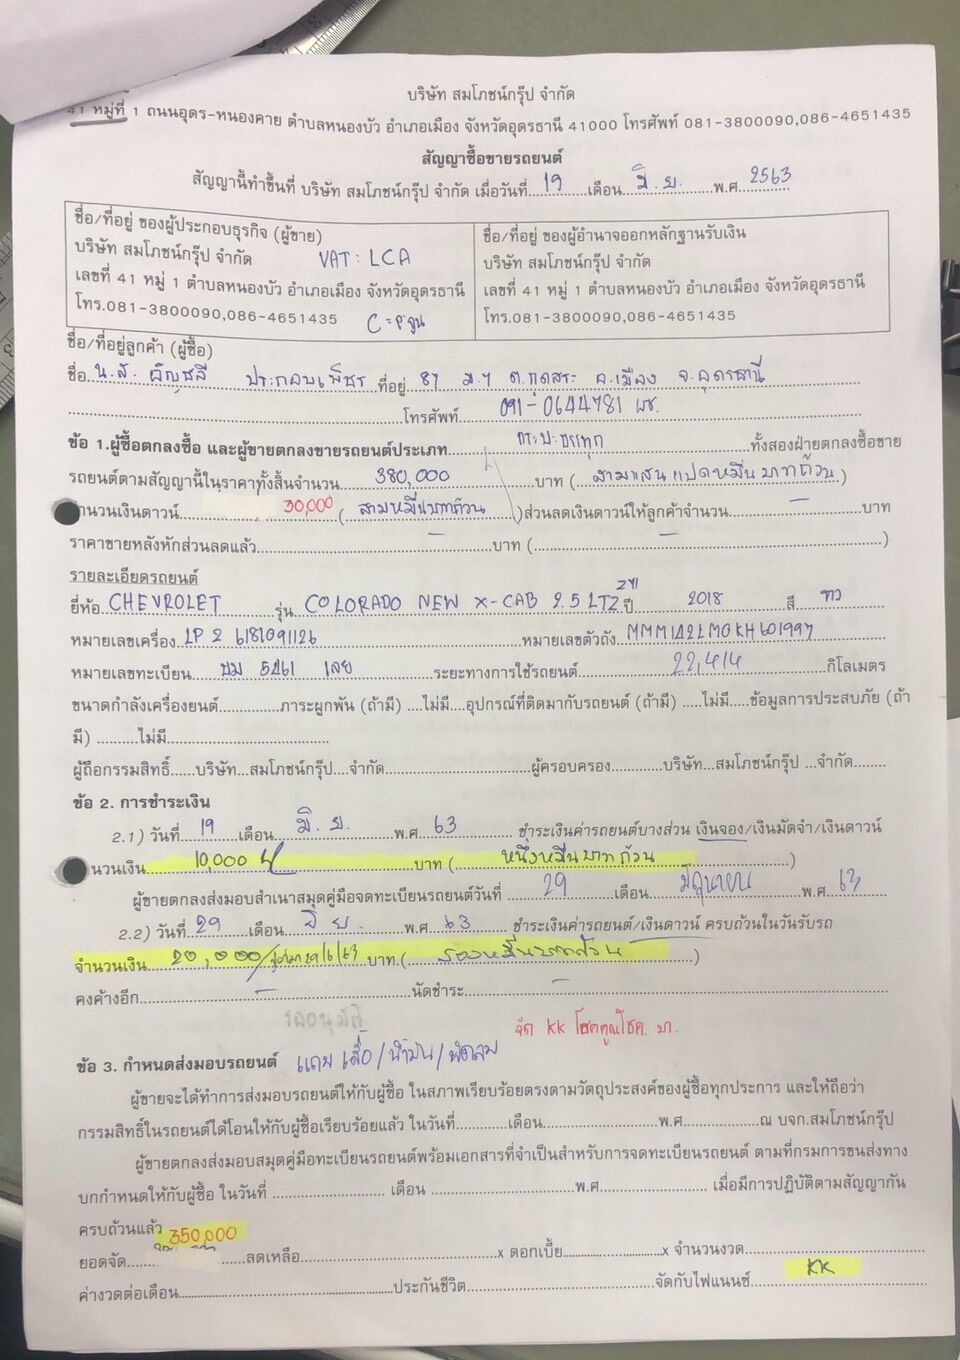 บริษัท สมโภชน์กรุ๊ป จำกัด
41 หมู่ที่ 1 ถนนอุดร-หนองคาย ตำบลหนองบัว อำเภอเมือง จังหวัดอุดรธานี 41000 โทรศัพท์ 081-3800090,086-4651435
สัญญาซื้อขายรถยนต์
สัญญานี้ทำขึ้นที่ บริษัท สมโภชน์กรุ๊ป จำกัด เมื่อวันที่ 19 เดือน มิ.ย. พ.ศ. 2563
ชื่อ/ที่อยู่ ของผู้ประกอบธุรกิจ (ผู้ขาย)
บริษัท สมโภชน์กรุ๊ป จำกัด VAT : LCA
เลขที่ 41 หมู่ 1 ตำบลหนองบัว อำเภอเมือง จังหวัดอุดรธานี
โทร.081-3800090,086-4651435
ชื่อ/ที่อยู่ ของผู้อำนาจออกหลักฐานรับเงิน
บริษัท สมโภชน์กรุ๊ป จำกัด
เลขที่ 41 หมู่ 1 ตำบลหนองบัว อำเภอเมือง จังหวัดอุดรธานี
โทร.081-3800090,086-4651435
ชื่อ/ที่อยู่ลูกค้า (ผู้ซื้อ)
ชื่อ น.ส. อัญชลี ประกอบเพ็ชร ที่อยู่ 87 ม.7 ต.กุดสระ อ.เมือง จ.อุดรธานี
โทรศัพท์ 091-0644781
ข้อ 1.ผู้ซื้อตกลงซื้อ และผู้ขายตกลงขายรถยนต์ประเภท กระบะบรรทุก ทั้งสองฝ่ายตกลงซื้อขาย
รถยนต์ตามสัญญานี้ในราคาทั้งสิ้นจำนวน 380,000 บาท ( สามแสนแปดหมื่นบาทถ้วน )
จำนวนเงินดาวน์ 30,000 ( สามหมื่นบาทถ้วน )ส่วนลดเงินดาวน์ให้ลูกค้าจำนวน - บาท
ราคาขายหลังหักส่วนลดแล้ว - บาท ( - )
รายละเอียดรถยนต์
ยี่ห้อ CHEVROLET รุ่น COLORADO NEW X-CAB 2.5 LTZ ปี 2018 สี ขาว
หมายเลขเครื่อง LP2 6181091126 หมายเลขตัวถัง MMM142LM0KH601997
หมายเลขทะเบียน บม 5261 เลย ระยะทางการใช้รถยนต์ 22,414 กิโลเมตร
ขนาดกำลังเครื่องยนต์ ภาระผูกพัน (ถ้ามี) ไม่มี อุปกรณ์ที่ติดมากับรถยนต์ (ถ้ามี) ไม่มี ข้อมูลการประสบภัย (ถ้า
มี) ไม่มี
ผู้ถือกรรมสิทธิ์ บริษัท สมโภชน์กรุ๊ป จำกัด ผู้ครอบครอง บริษัท สมโภชน์กรุ๊ป จำกัด
ข้อ 2. การชำระเงิน
2.1) วันที่ 19 เดือน มิ.ย. พ.ศ. 63 ชำระเงินค่ารถยนต์บางส่วน เงินจอง/เงินมัดจำ/เงินดาวน์
นวนเงิน 10,000 บาท ( หนึ่งหมื่นบาทถ้วน )
ผู้ขายตกลงส่งมอบสำเนาสมุดคู่มือจดทะเบียนรถยนต์วันที่ 29 เดือน มิถุนายน พ.ศ. 63
2.2) วันที่ 29 เดือน มิ.ย. พ.ศ. 63 ชำระเงินค่ารถยนต์/เงินดาวน์ ครบถ้วนในวันรับรถ
จำนวนเงิน 20,000 29/6/63 บาท ( สองหมื่นบาทถ้วน )
คงค้างอีก - นัดชำระ -
รออนุมัติ
จัด KK
ข้อ 3. กำหนดส่งมอบรถยนต์ แถม เสื้อ/น้ำมัน/พัดลม
ผู้ขายจะได้ทำการส่งมอบรถยนต์ให้กับผู้ซื้อ ในสภาพเรียบร้อยตรงตามวัตถุประสงค์ของผู้ซื้อทุกประการ และให้ถือว่า
กรรมสิทธิ์ในรถยนต์ได้โอนให้กับผู้ซื้อเรียบร้อยแล้ว ในวันที่ เดือน พ.ศ. ณ บจก.สมโภชน์กรุ๊ป
ผู้ขายตกลงส่งมอบสมุดคู่มือทะเบียนรถยนต์พร้อมเอกสารที่จำเป็นสำหรับการจดทะเบียนรถยนต์ ตามที่กรมการขนส่งทาง
บกกำหนดให้กับผู้ซื้อ ในวันที่ เดือน พ.ศ. เมื่อมีการปฏิบัติตามสัญญากัน
ครบถ้วนแล้ว
ยอดจัด 350,000 ลดเหลือ x ดอกเบี้ย x จำนวนงวด
ค่างวดต่อเดือน ประกันชีวิต จัดกับไฟแนนซ์ KK